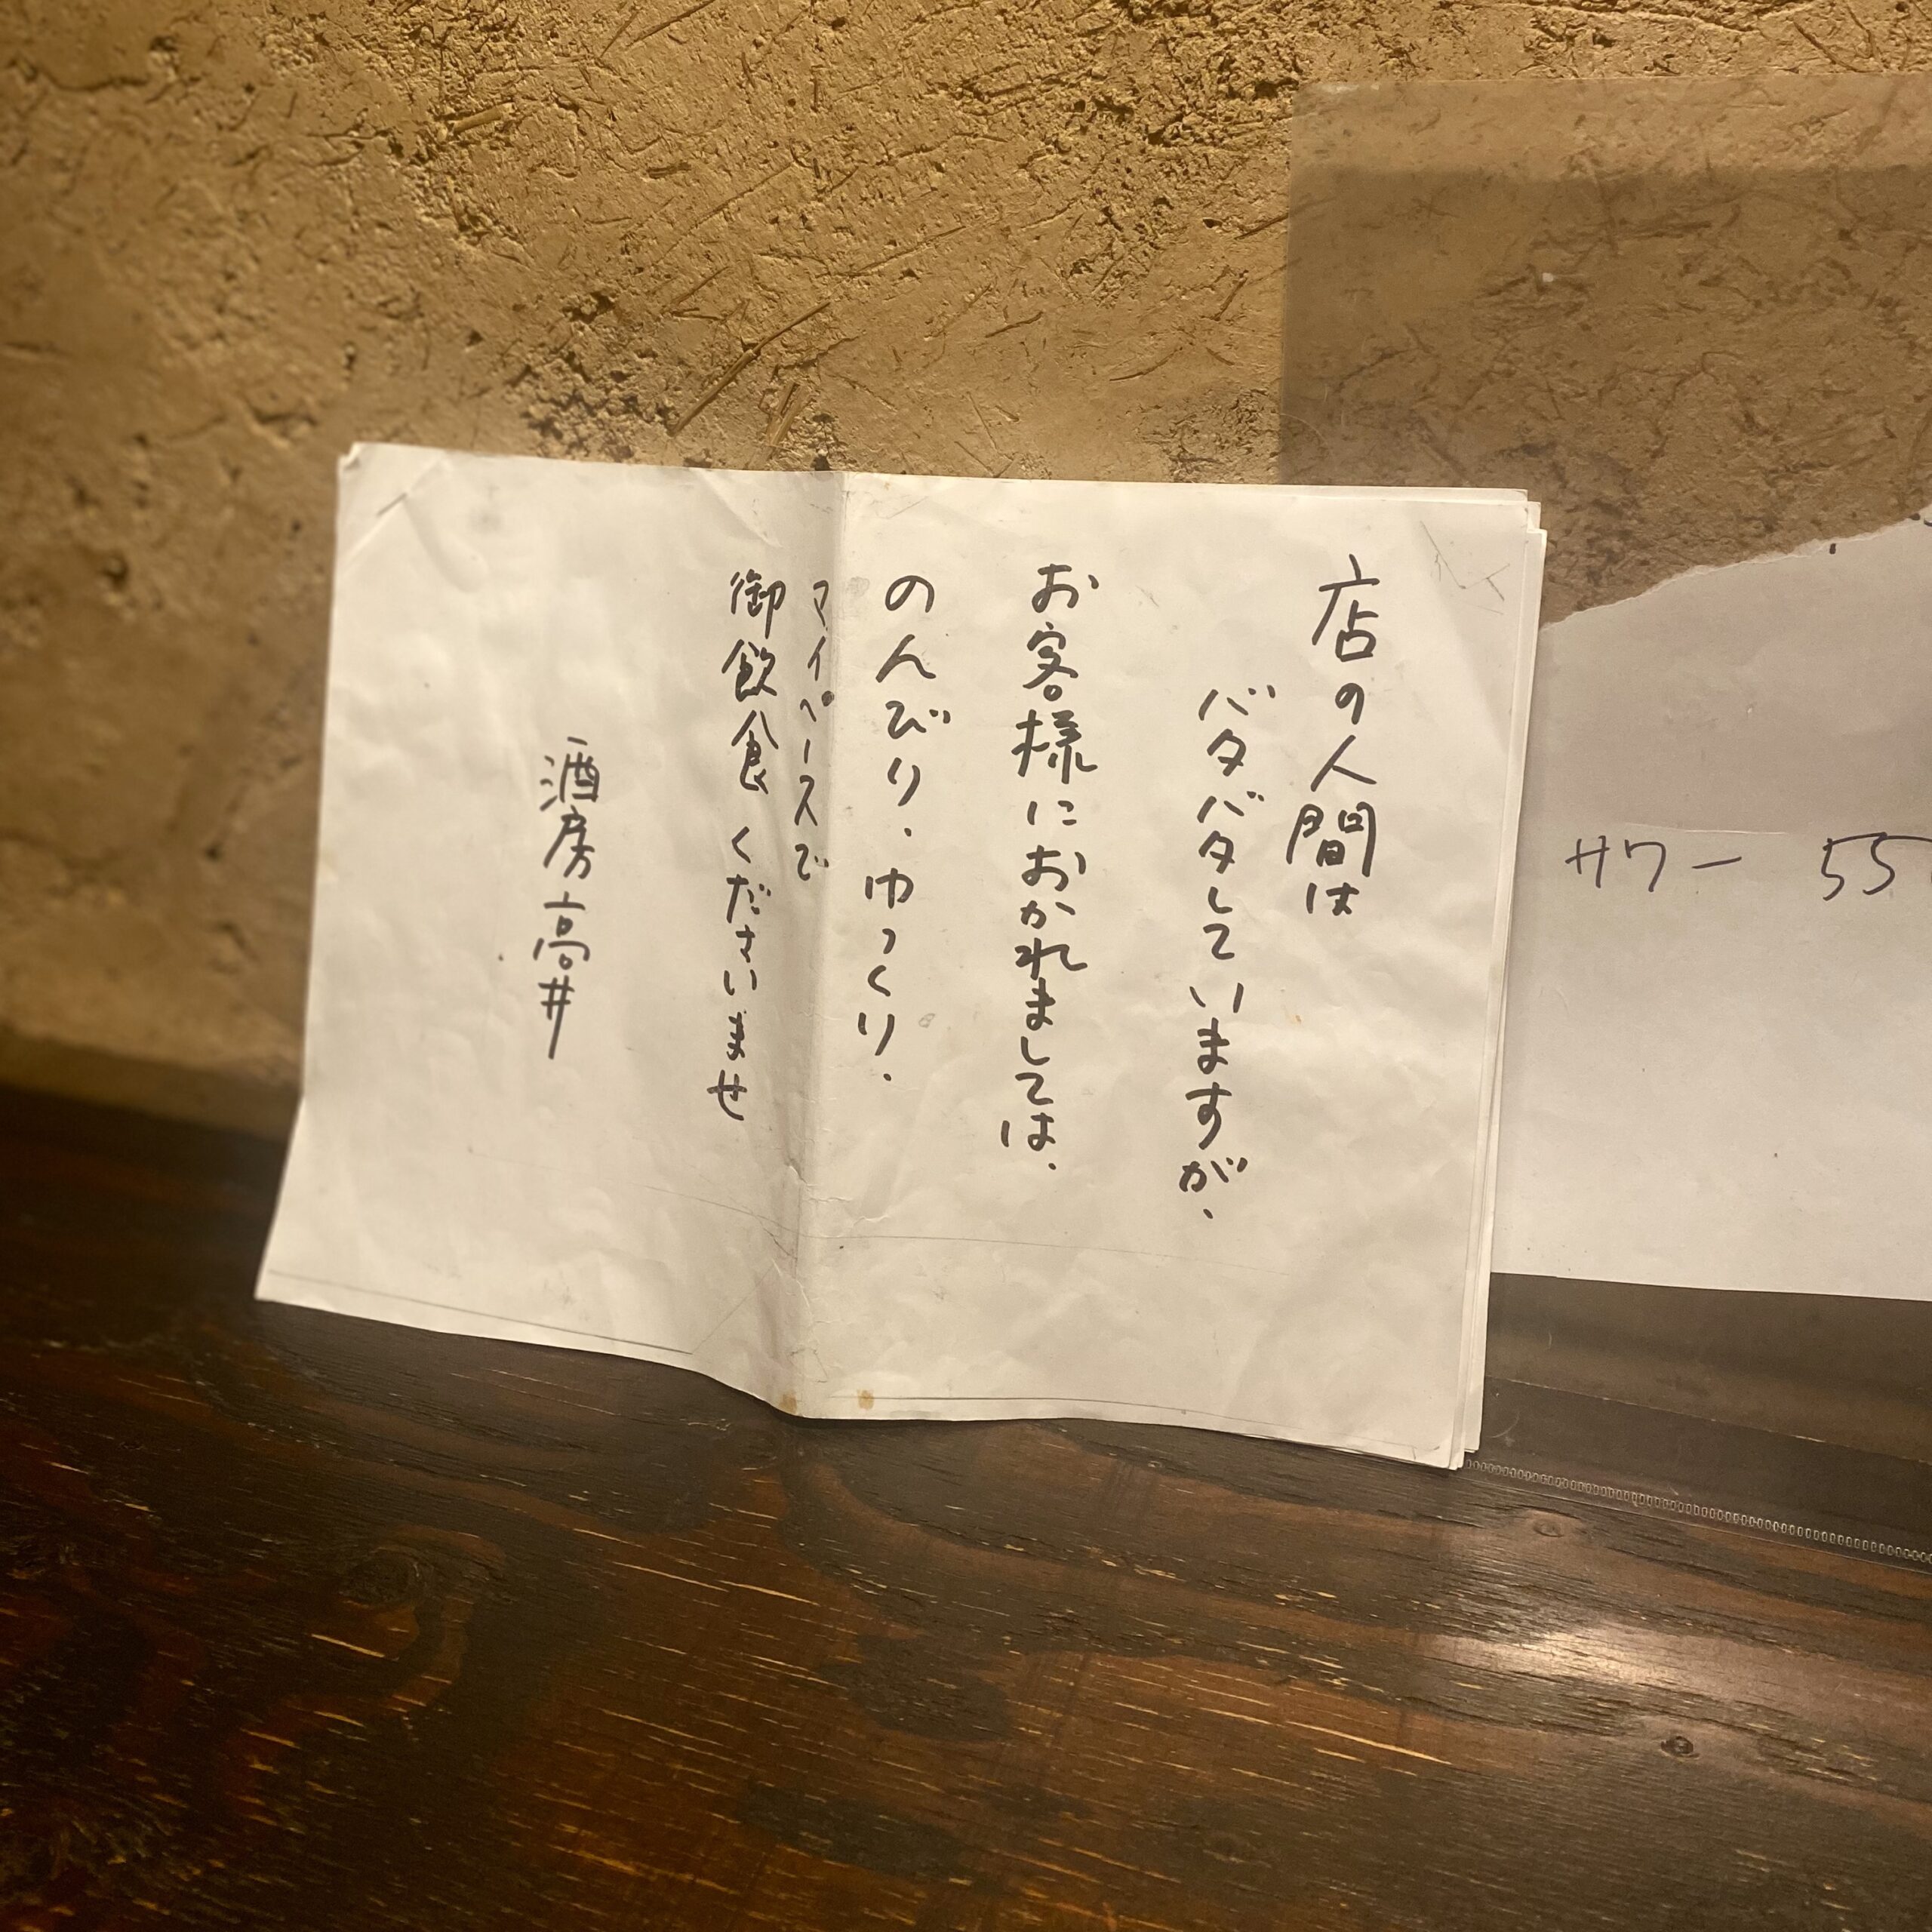 店の人間は
バタバタしていますが、
お客様におかれましては、
のんびり、ゆっくり、
マイペースで
御飲食くださいませ
酒房高井
サワー 55